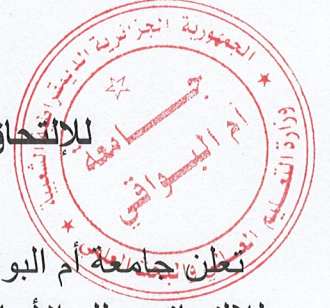 الجمهورية الجزائرية الديمقراطية الشعبية
وزارة التعليم العالي والبحث العلمي
جامعة
أم البواقي
للإلتحاق
تعلن جامعة أم البو